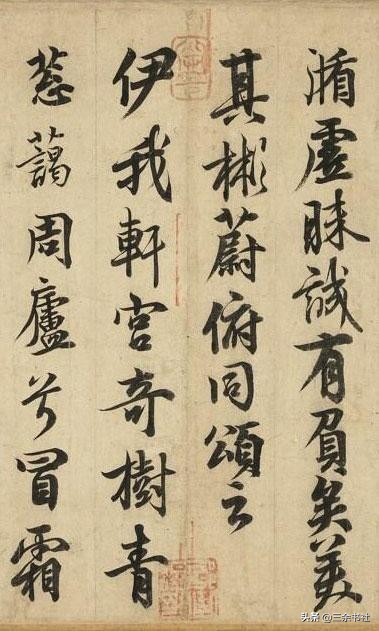 循虛昧誠有負矣美
其彬蔚俯同頌云
伊我軒宮奇樹青
葱藹周廬兮冒霜
头条 @三余书社